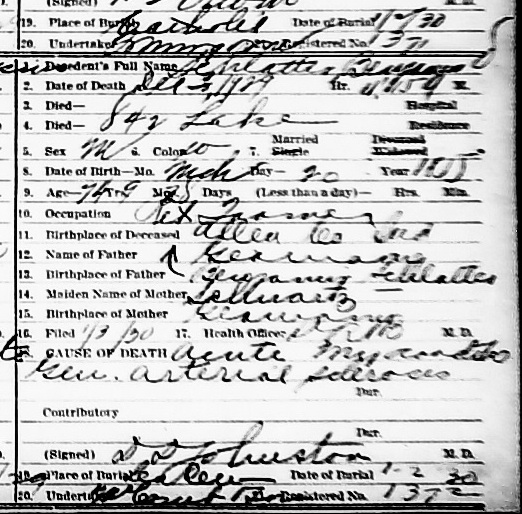 (Signed)
19. Place of Burial Catholic Date of Burial 1/2/30
20. Undertaker Registered No. 1371
Decedent's Full Name Schlatter Benjamin
2. Date of Death Dec Hr. M.
3. Died— Hospital
4. Died— 842 Lake Residence
5. Sex M 6. Color W 7. Married Single Divorced Widowed
8. Date of Birth—Mo. Mch Day— 20 Year
9. Age 74 Yrs 9 Mos Days (Less than a day)— Hrs. Min.
10. Occupation Ret Farmer
11. Birthplace of Deceased Allen Co Ind
12. Name of Father Germany
13. Birthplace of Father Benjamin Schlatter
14. Maiden Name of Mother Schwartz
15. Birthplace of Mother Germany
16. Filed 1/3/30 17. Health Officer M. D.
18. CAUSE OF DEATH acute Myocarditis
Gen. arterial sclerosis
Dur.
Contributory
Dur.
(Signed) Johnston M. D.
19. Place of Burial Date of Burial 1-2 30
20. Undertaker Registered No. 1372